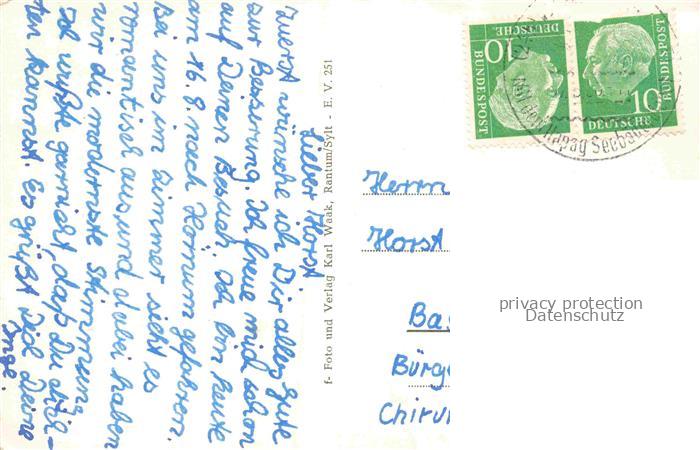 Lieber Horst
Zuerst wünsche ich Dir alles Gute
zur Besserung. Ich freue mich schon
auf Deinen Besuch. Ich bin heute
am 16.8. nach Hörnum gefahren.
Bei uns im Zimmer sieht es
romantisch aus, und dabei haben
wir die modernste Stimmung.
Ich wußte garnicht, daß Du dich-
ten kannst. Es grüßt Dich Deine
Inge.
f- Foto und Verlag Karl Waak, Rantum/Sylt - E. V. 251
10
DEUTSCHE
BUNDESPOST
10
DEUTSCHE
BUNDESPOST
Mit der Hapag Seebäder
Herrn
Horst
Ba
Bürge
Chirur
privacy protection
Datenschutz